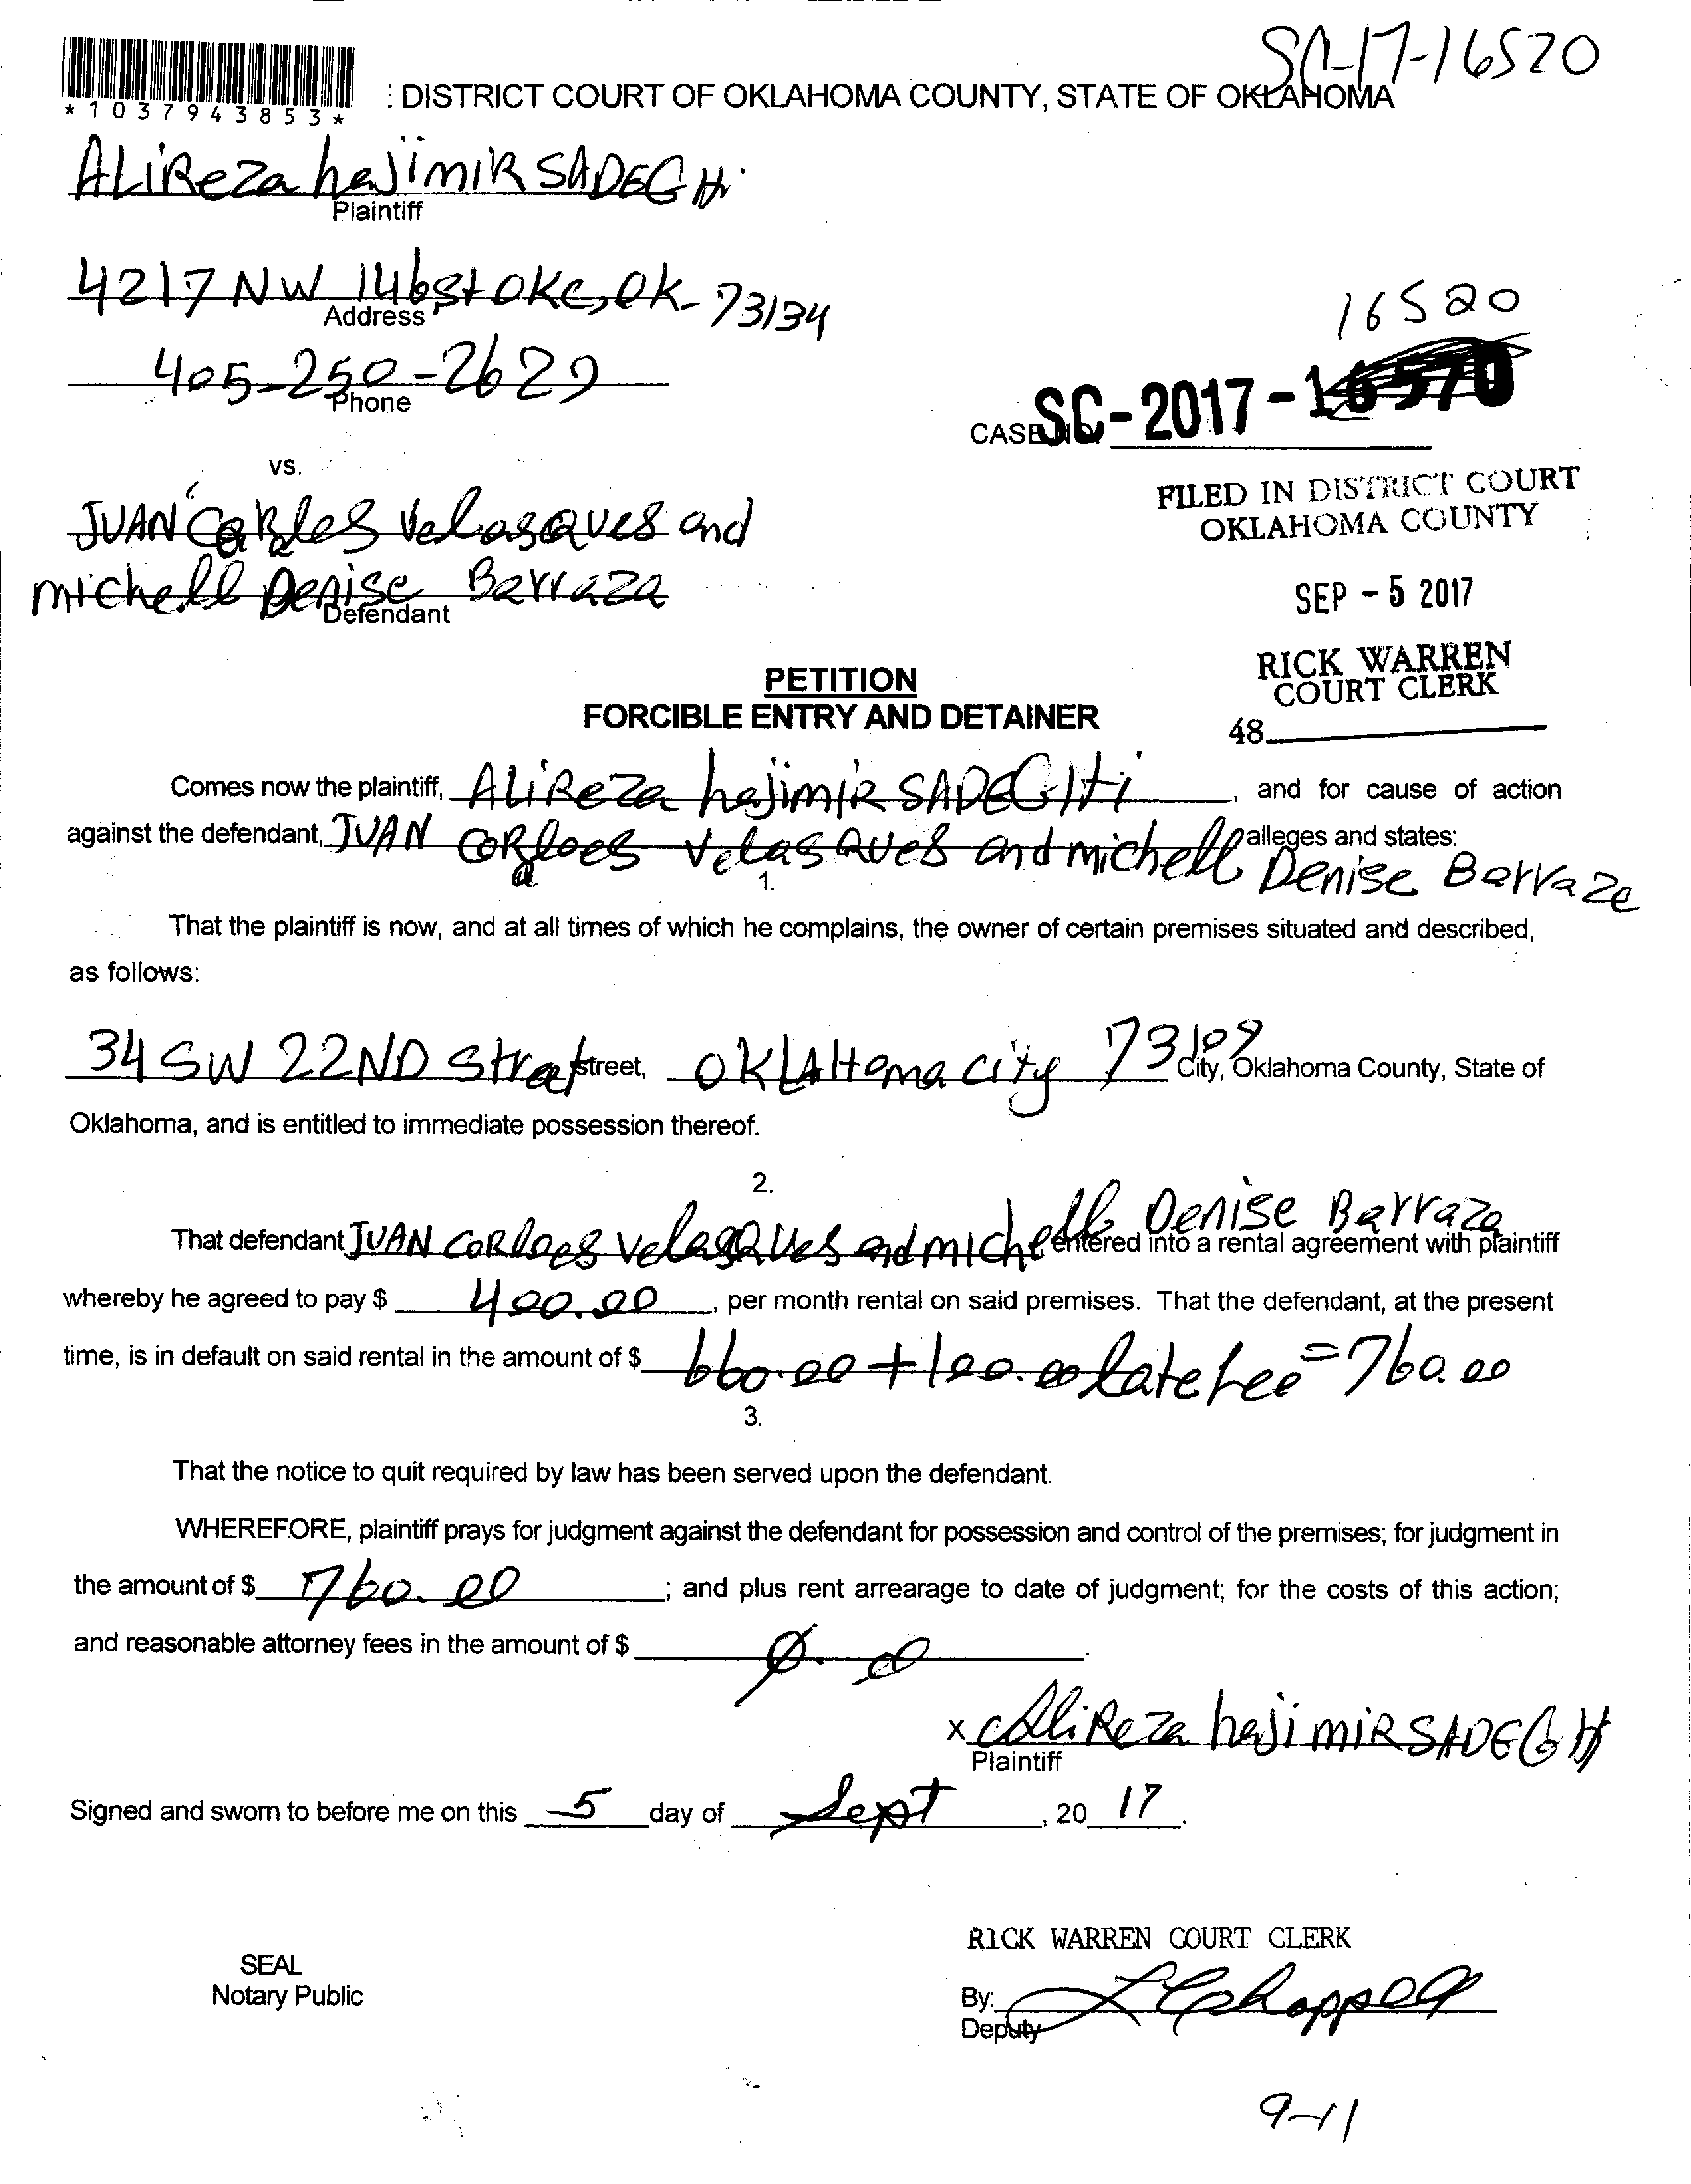 SC-17-16520
*1037943853*
: DISTRICT COURT OF OKLAHOMA COUNTY, STATE OF OKLAHOMA
ALiReza hajimiR SADEGHi
Plaintiff
4217 NW 146st OKC, OK- 73134
Address
405-250-2629
Phone
16520
CASE NO. SC-2017-16570
vs.
FILED IN DISTRICT COURT
OKLAHOMA COUNTY
JUAN CaRles Velasques and
michell Denise Barraza
Defendant
SEP - 5 2017
RICK WARREN
COURT CLERK
48
PETITION
FORCIBLE ENTRY AND DETAINER
Comes now the plaintiff, ALiReza hajimiR SADEGHi, and for cause of action
against the defendant, JUAN CORloes Velasques and michell Denise Barraza alleges and states:
1.
That the plaintiff is now, and at all times of which he complains, the owner of certain premises situated and described,
as follows:
34 SW 22ND Street street, OKLAHoma city 73109 City, Oklahoma County, State of
Oklahoma, and is entitled to immediate possession thereof.
2.
That defendant JUAN CORloes Velasques and michell Denise Barraza entered into a rental agreement with plaintiff
whereby he agreed to pay $ 400.00, per month rental on said premises. That the defendant, at the present
time, is in default on said rental in the amount of $ 660.00 + 100.00 late fee = 760.00
3.
That the notice to quit required by law has been served upon the defendant.
WHEREFORE, plaintiff prays for judgment against the defendant for possession and control of the premises; for judgment in
the amount of $ 760.00; and plus rent arrearage to date of judgment; for the costs of this action;
and reasonable attorney fees in the amount of $ 0.00.
x ALiReza hajimiRSADEGH
Plaintiff
Signed and sworn to before me on this 5 day of Sept, 20 17.
RICK WARREN COURT CLERK
SEAL
Notary Public
By:
Deputy
9-11